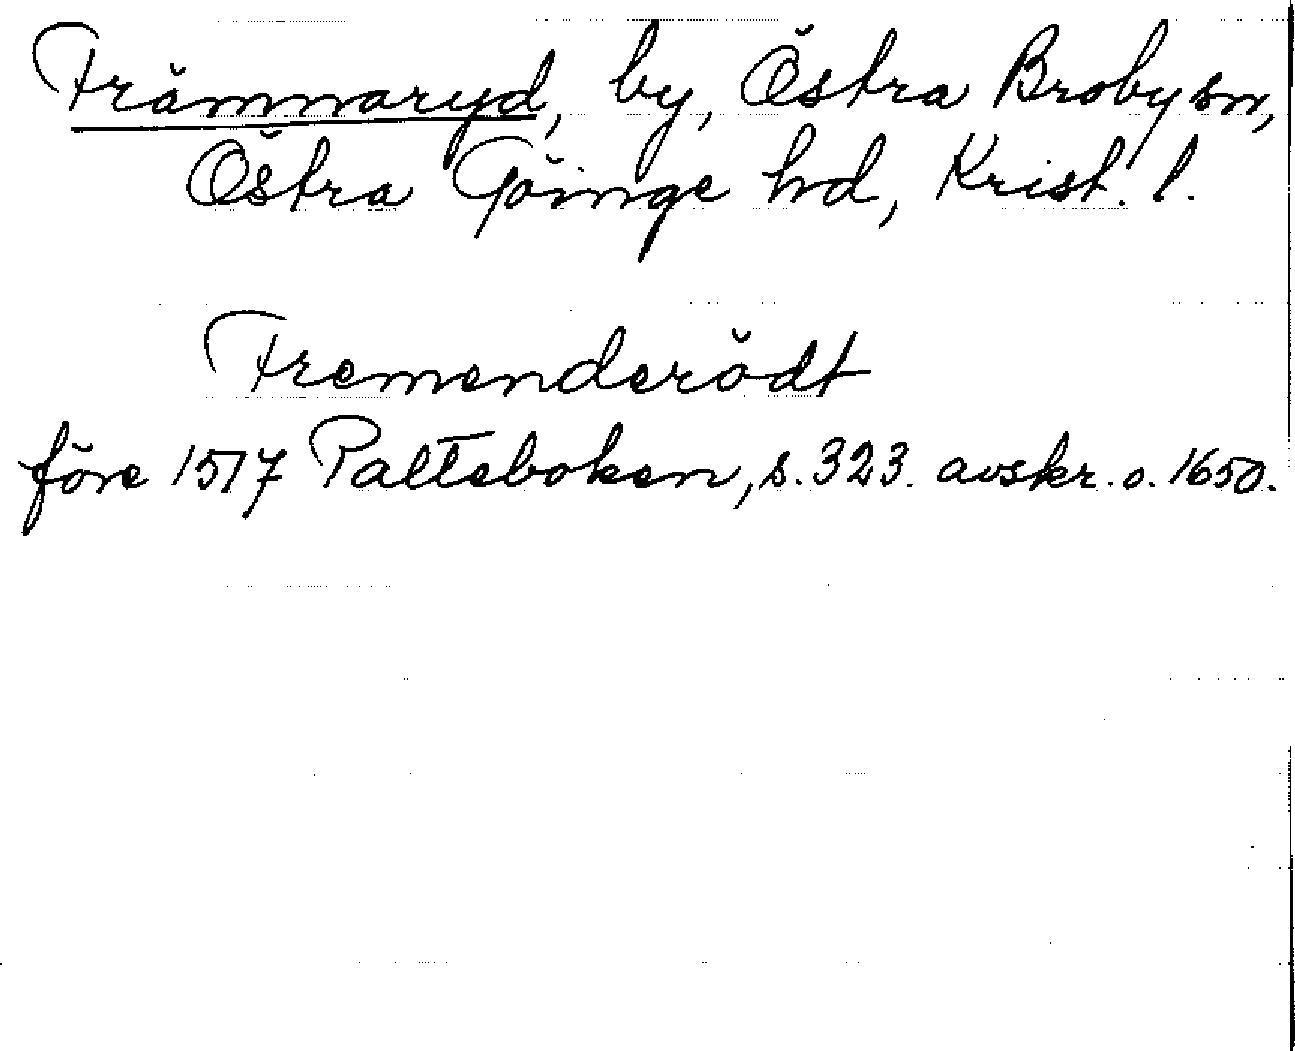 Främmaryd, by, Östra Broby sn,
Östra Göinge hd, Krist. l.
Fremenderödt
före 1517 Palteboken, s. 323. avskr. o. 1650.